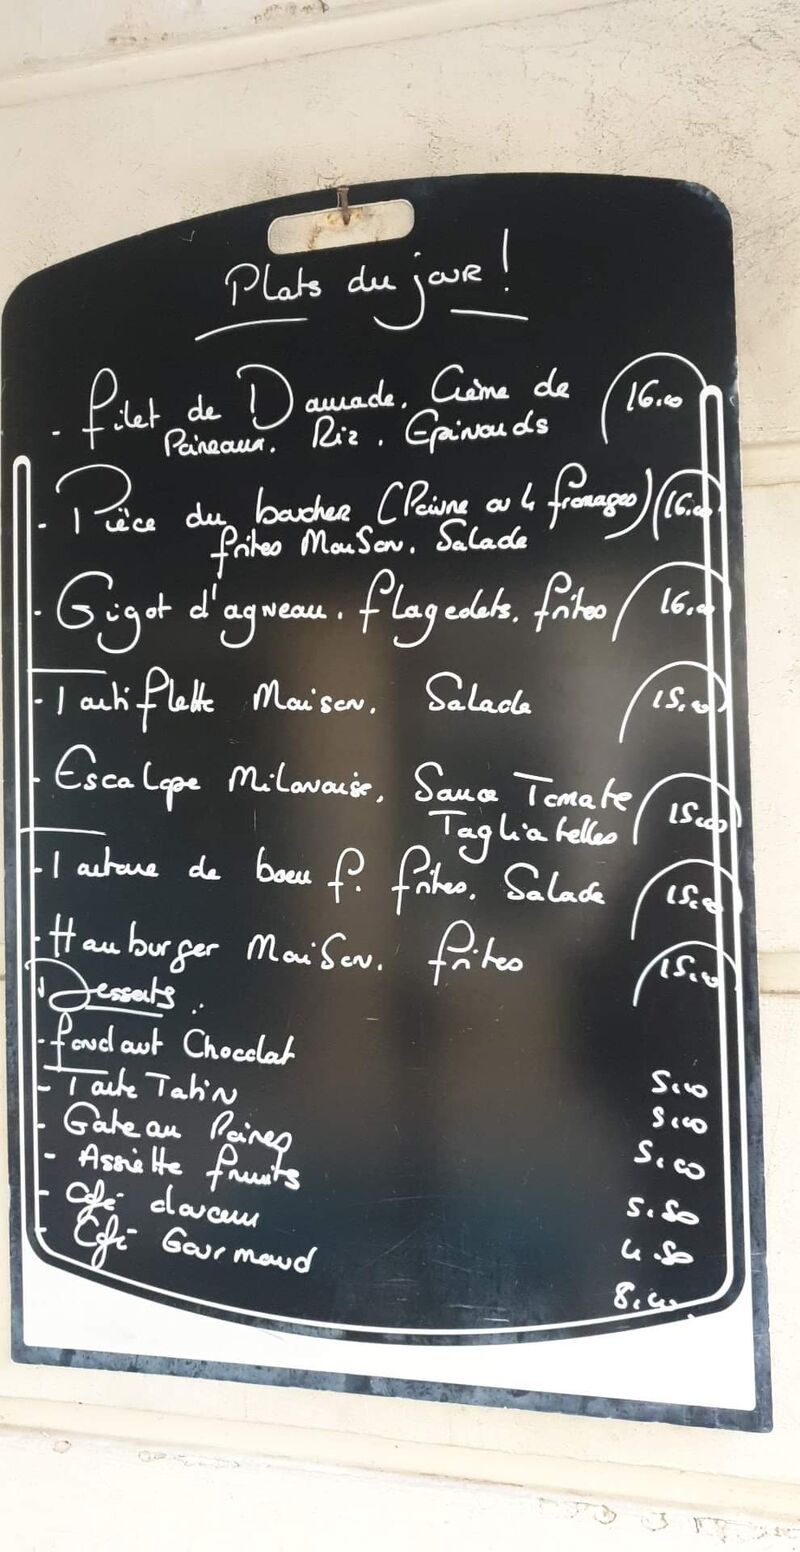 Plats du jour !
- Filet de Daurade. Crème de 16.00
Poireaux. Riz. Epinards
- Pièce du boucher (Poivre ou 4 fromages) 16.00
frites Maison. Salade
- Gigot d'agneau. flageolets. frites 16.00
- Tartiflette Maison. Salade 15.00
- Escalope Milanaise. Sauce Tomate 15.00
Tagliatelles
- Tartare de boeuf. frites. Salade 15.00
- Hamburger Maison. frites 15.00
Desserts :
- fondant Chocolat 5.00
- Tarte Tatin 5.00
- Gateau Poires 5.00
- Assiette fruits 5.50
- Café douceur 4.50
- Café Gourmand